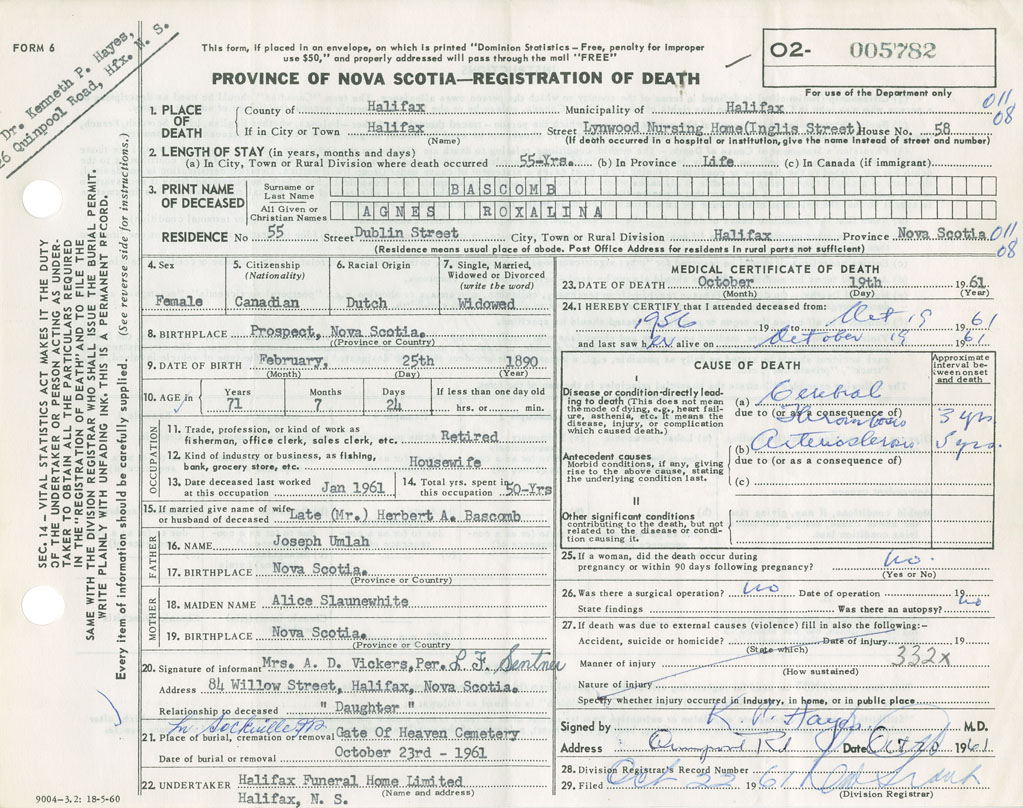 FORM 6
Dr. Kenneth P. Hayes,
26 Quinpool Road, Hfx. N. S.
This form, if placed in an envelope, on which is printed "Dominion Statistics – Free, penalty for improper
use $50," and properly addressed will pass through the mail "FREE"
PROVINCE OF NOVA SCOTIA—REGISTRATION OF DEATH
O2- 005782
For use of the Department only
011
08
1. PLACE OF DEATH
County of Halifax Municipality of Halifax
If in City or Town Halifax Street Lynwood Nursing Home(Inglis Street) House No. 58
(Name) (If death occurred in a hospital or institution, give the name instead of street and number)
2. LENGTH OF STAY (in years, months and days)
(a) In City, Town or Rural Division where death occurred 55-Yrs. (b) In Province Life (c) In Canada (if immigrant)
3. PRINT NAME OF DECEASED
Surname or Last Name BASCOMB
All Given or Christian Names AGNES ROXALINA
RESIDENCE No 55 Street Dublin Street City, Town or Rural Division Halifax Province Nova Scotia
(Residence means usual place of abode. Post Office Address for residents in rural parts not sufficient)
011
08
SEC. 14 — VITAL STATISTICS ACT MAKES IT THE DUTY
OF THE UNDERTAKER OR PERSON ACTING AS UNDER-
TAKER TO OBTAIN ALL THE PARTICULARS REQUIRED
IN THE "REGISTRATION OF DEATH" AND TO FILE THE
SAME WITH THE DIVISION REGISTRAR WHO SHALL ISSUE THE BURIAL PERMIT.
WRITE PLAINLY WITH UNFADING INK. THIS IS A PERMANENT RECORD.
Every item of information should be carefully supplied. (See reverse side for instructions.)
4. Sex
Female
5. Citizenship
(Nationality)
Canadian
6. Racial Origin
Dutch
7. Single, Married,
Widowed or Divorced
(write the word)
Widowed
8. BIRTHPLACE Prospect, Nova Scotia.
(Province or Country)
9. DATE OF BIRTH February, 25th 1890
(Month) (Day) (Year)
10. AGE in Years Months Days If less than one day old
71 7 24 hrs. or min.
OCCUPATION
11. Trade, profession, or kind of work as
fisherman, office clerk, sales clerk, etc. Retired
12. Kind of industry or business, as fishing,
bank, grocery store, etc. Housewife
13. Date deceased last worked
at this occupation Jan 1961
14. Total yrs. spent in
this occupation 50-Yrs
15. If married give name of wife
or husband of deceased Late (Mr.) Herbert A. Bascomb
FATHER
16. NAME Joseph Umlah
17. BIRTHPLACE Nova Scotia.
(Province or Country)
MOTHER
18. MAIDEN NAME Alice Slaunewhite
19. BIRTHPLACE Nova Scotia.
(Province or Country
20. Signature of informant Mrs. A. D. Vickers, Per. L F. Sentner
Address 84 Willow Street, Halifax, Nova Scotia.
Relationship to deceased " Daughter "
In Sackville
21. Place of burial, cremation or removal Gate Of Heaven Cemetery
Date of burial or removal October 23rd - 1961
22. UNDERTAKER Halifax Funeral Home Limited
(Name and address)
Halifax, N. S.
9004-3.2: 18-5-60
MEDICAL CERTIFICATE OF DEATH
23. DATE OF DEATH October 19th 1961
(Month) (Day) (Year)
24. I HEREBY CERTIFY that I attended deceased from:
1956 19 to Oct 19 1961
and last saw her alive on October 19 1961
CAUSE OF DEATH
Approximate
interval be-
tween onset
and death
I
Disease or condition directly lead-
ing to death (This does not mean
the mode of dying, e.g., heart fail-
ure, asthenia, etc. It means the
disease, injury, or complication
which caused death.)
(a) Cerebral
due to (or as a consequence of)
Thrombosis 3 yrs
Antecedent causes
Morbid conditions, if any, giving
rise to the above cause, stating
the underlying condition last.
(b) Arteriosclerosis 5 yrs.
due to (or as a consequence of)
(c)
II
Other significant conditions
contributing to the death, but not
related to the disease or condi-
tion causing it.
25. If a woman, did the death occur during
pregnancy or within 90 days following pregnancy? no.
(Yes or No)
26. Was there a surgical operation? no Date of operation 19
State findings Was there an autopsy? no
27. If death was due to external causes (violence) fill in also the following:–
Accident, suicide or homicide? Date of injury 19
(State which)
Manner of injury 332x
(How sustained)
Nature of injury
Specify whether injury occurred in industry, in home, or in public place
Signed by K P. Hayes M.D.
Address Quinpool Rd Date Oct 20 1961
28. Division Registrar's Record Number
29. Filed Oct 22 1961
(Division Registrar)